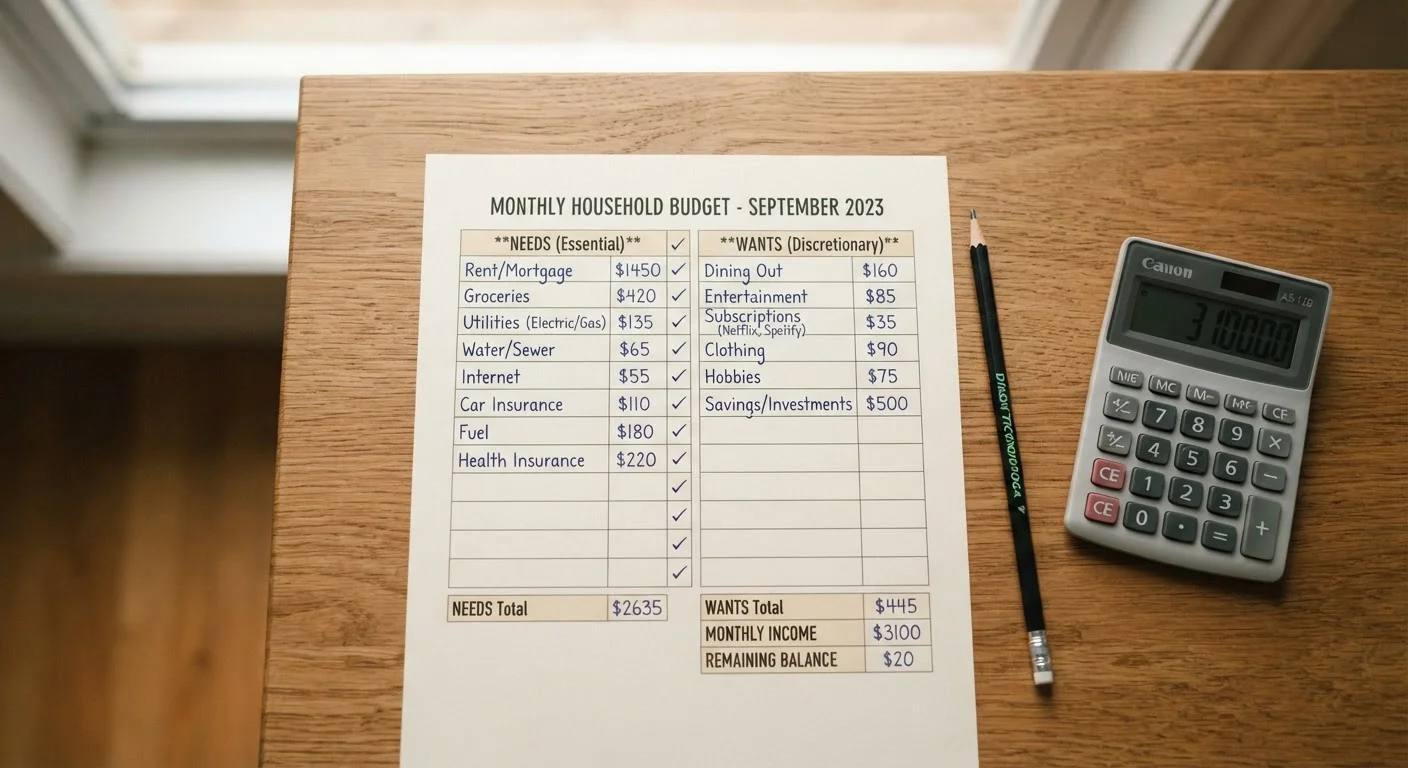 MONTHLY HOUSEHOLD BUDGET - SEPTEMBER 2023
**NEEDS (Essential)** ✓
Rent/Mortgage $1450 ✓
Groceries $420 ✓
Utilities (Electric/Gas) $135 ✓
Water/Sewer $65 ✓
Internet $55 ✓
Car Insurance $110 ✓
Fuel $180 ✓
Health Insurance $220 ✓
✓
✓
✓
✓
NEEDS Total $2635
**WANTS (Discretionary)**
Dining Out $160
Entertainment $85
Subscriptions $35
Clothing $90
Hobbies $75
Savings/Investments $500
WANTS Total $445
MONTHLY INCOME $3100
REMAINING BALANCE $20
Canon
MC M-
CF
7 8 9 ×
4 5 6 −
CE 1 2 3
CE 0 . = +